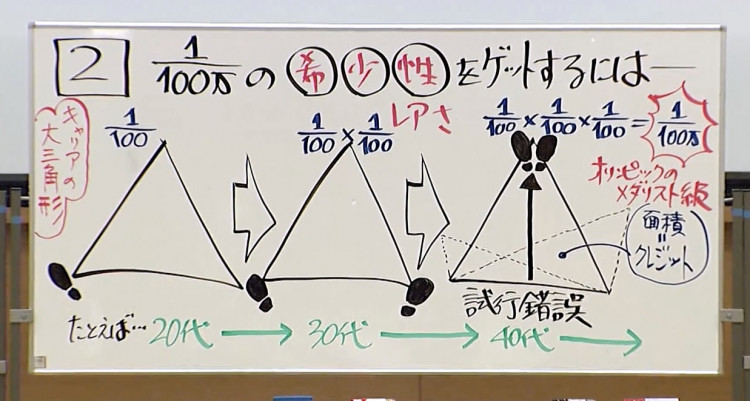 2 1/100万の希少性をゲットするには―
レアさ
キャリアの大三角形
1/100
1/100×1/100
1/100×1/100×1/100=1/100万
オリンピックのメダリスト級
面積
=
クレジット
試行錯誤
たとえば…20代→30代→40代→